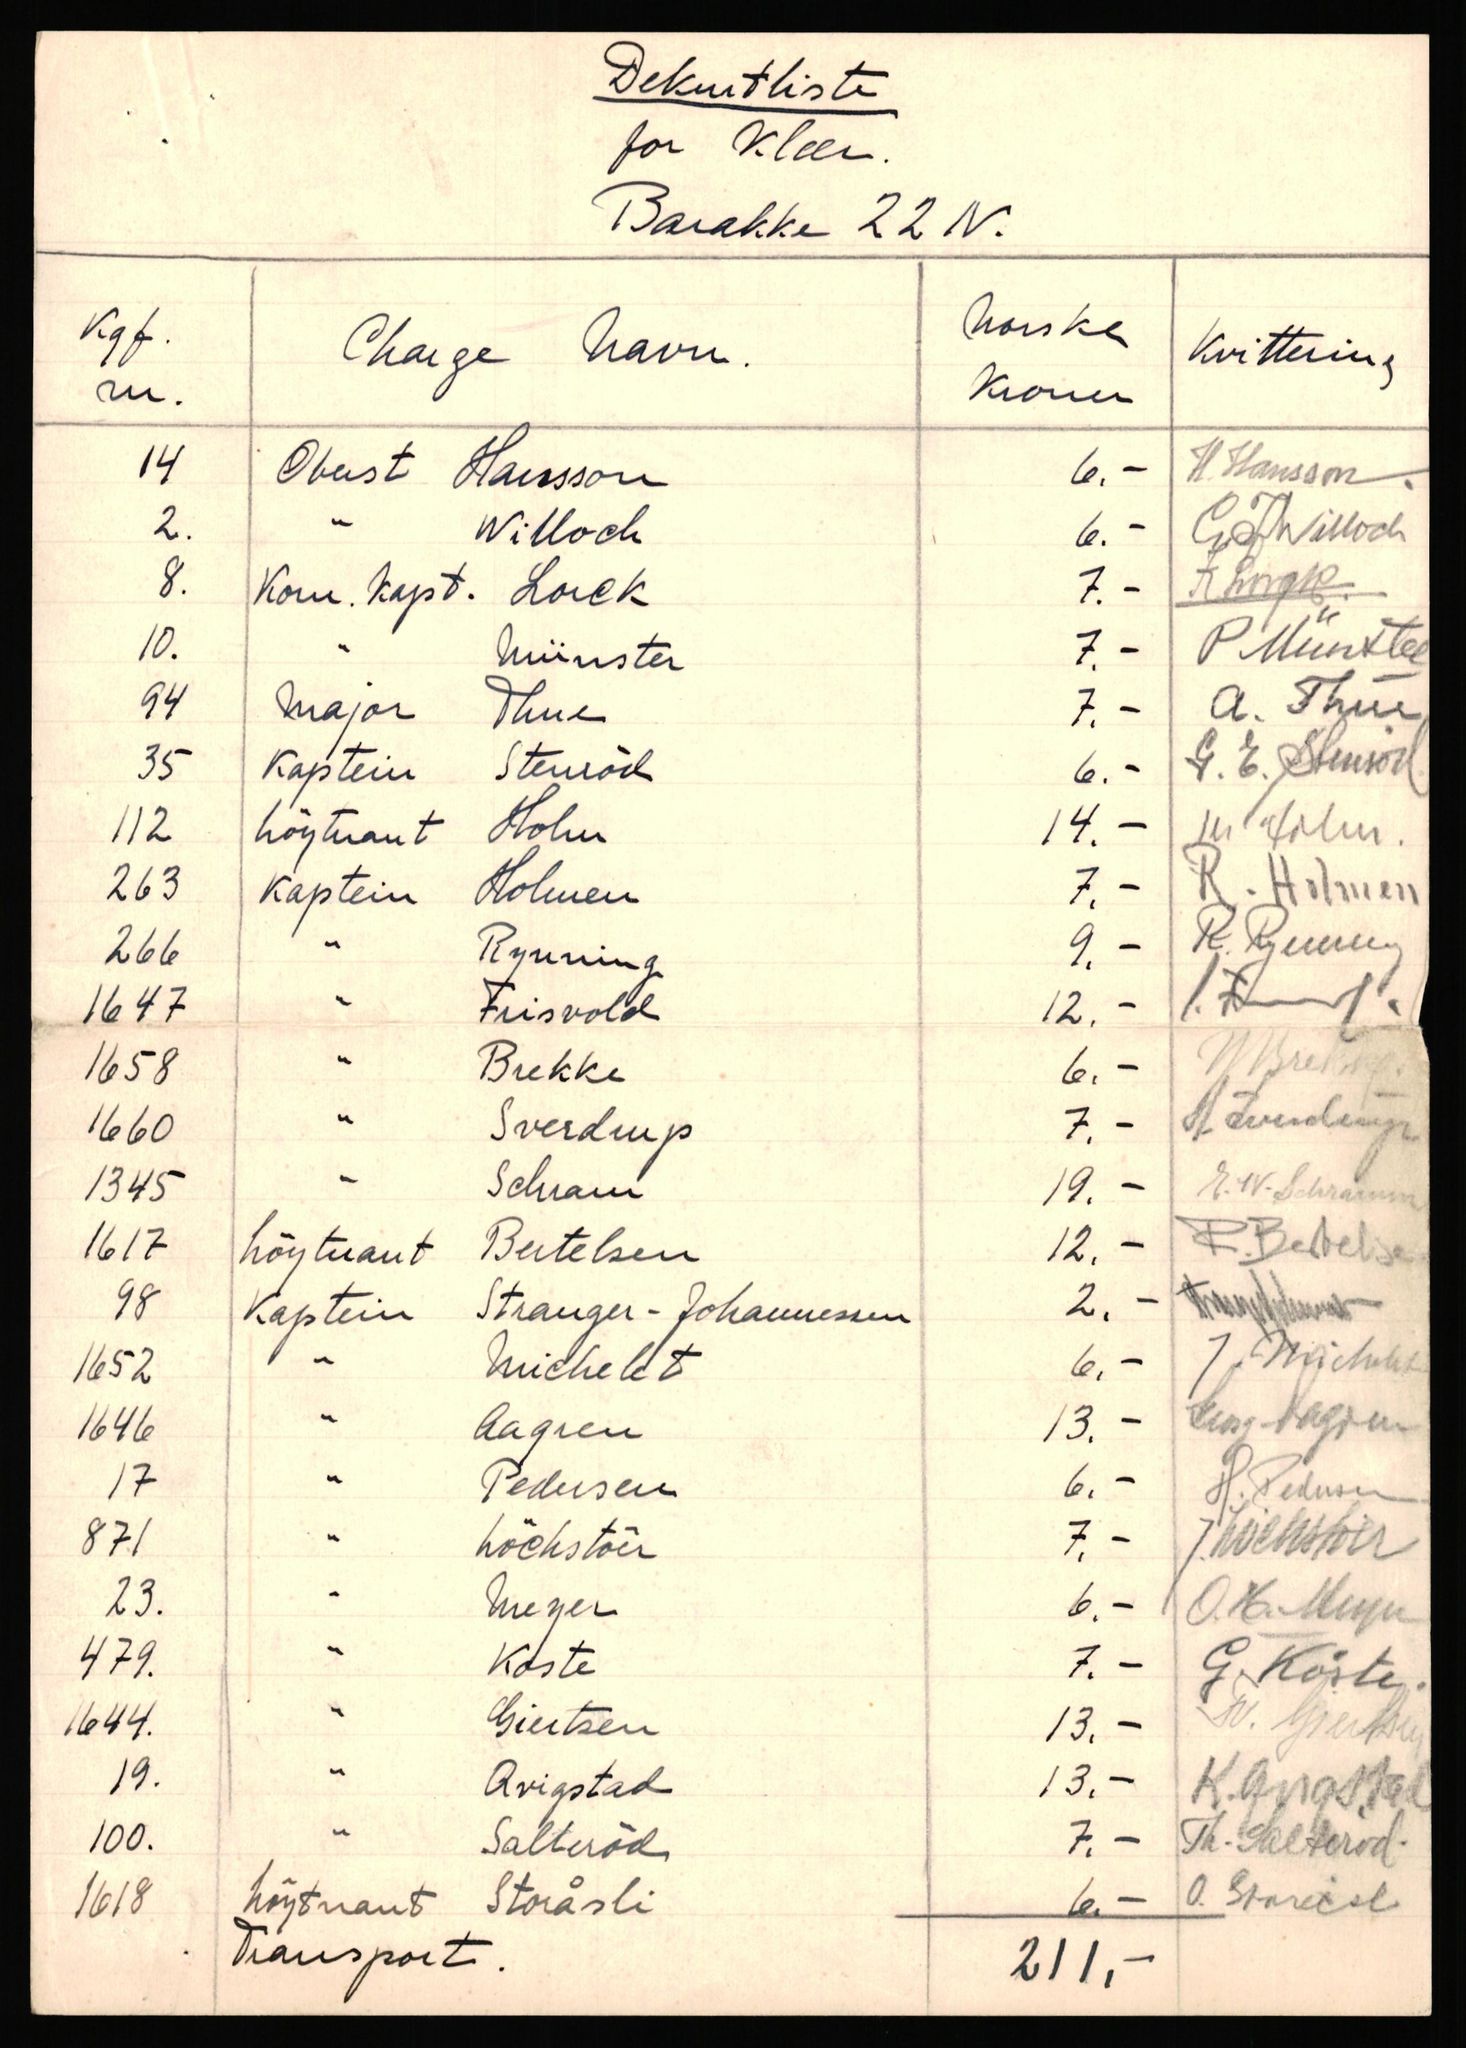 Dekurtliste
for Klær.
Barakke 22 N.
Kgf. nr. Charge Navn. Norske Kroner Kvittering
14 Oberst Hansson 6.- H. Hansson.
2. " Willoch 6.- G. I. Willoch
8. Kom. kapt. Lorck 7.-
10. " Münster 7.- P Münster
94 Major Thue 7.- A. Thue
35 Kaptein Stenröd 6.- G. E. Stenröd
112 Löytnant Holm 14.- Holm.
263 Kaptein Holmen 7.- R. Holmen
266 " Rynning 9.- R. Rynning
1647 " Frisvold 12.-
1658 " Brekke 6.- Brekke.
1660 " Sverdrup 7.- Sverdrup
1345 " Schram 19.- E. W. Schramm
1617 Löytnant Bertelsen 12.- R. Bertelsen
98 Kaptein Stranger-Johannessen 2.-
1652 " Michelet 6.- J. Michelet
1646 " Aagren 13.- Aagren
17 " Pedersen 6.- H. Pedersen
871 " Löchstöer 7.- J. Löchstöer
23. " Meyer 6.- O. H. Meyer
479. " Koste 7.- G. Köste.
1644. " Giertsen 13.- Giertsen
19. " Qvigstad 13.- K. Qvigstad
100. " Salteröd 7.- Th. Salteröd.
1618 Löytnant Storåsli 6.- O. Storåsli
Transport. 211,-